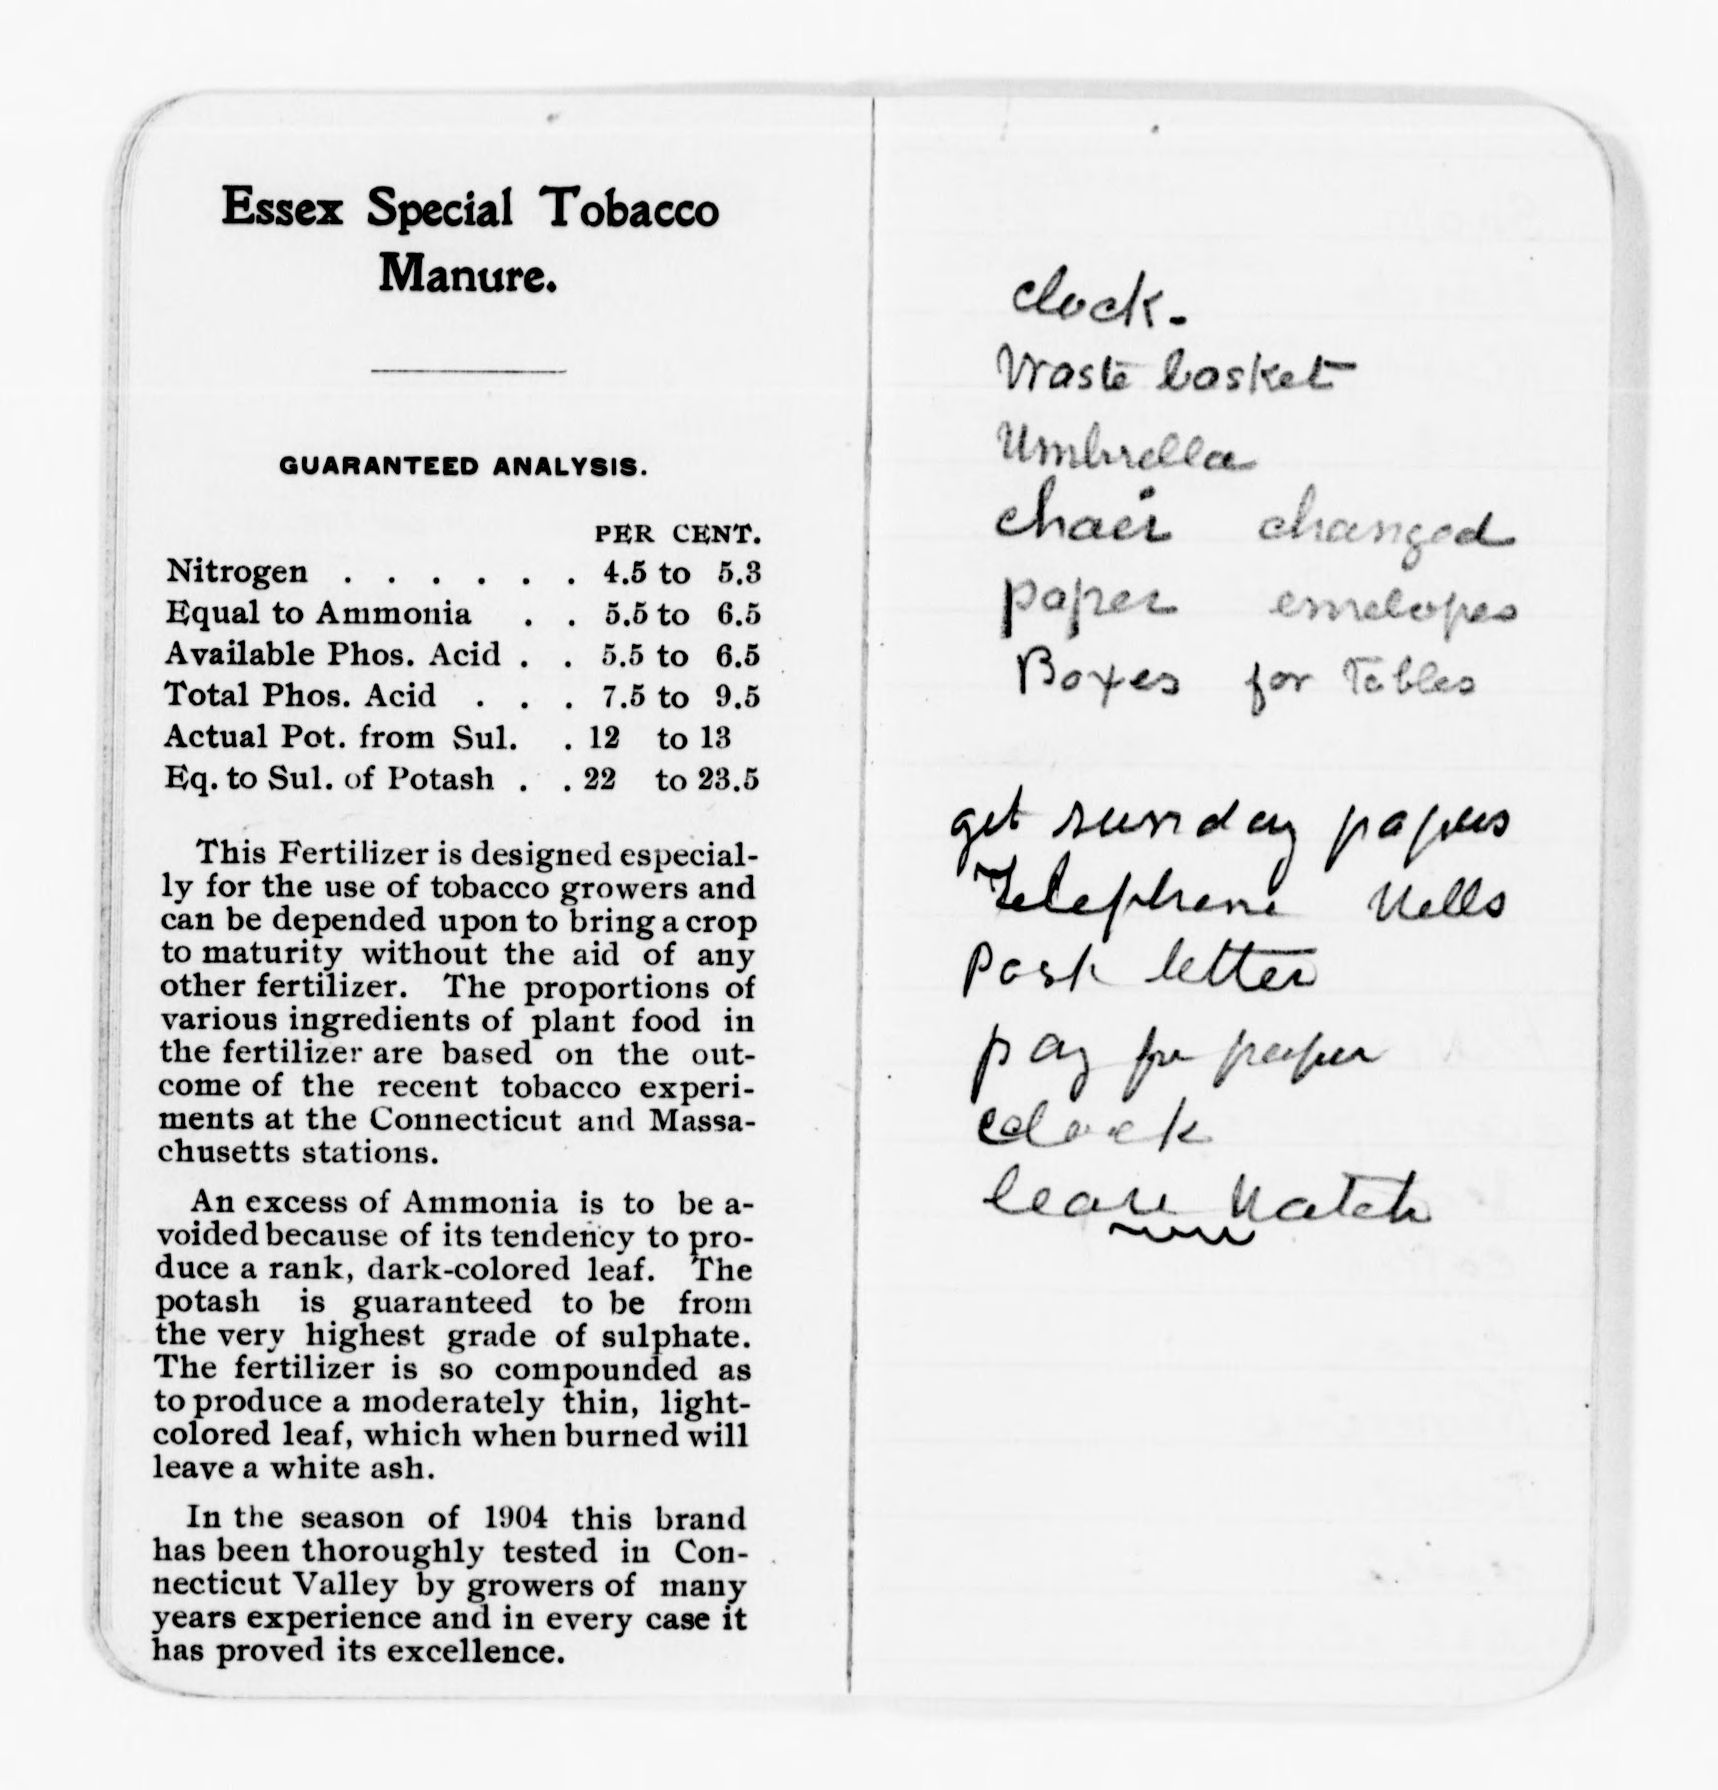 Essex Special Tobacco
Manure.
GUARANTEED ANALYSIS.
PER CENT.
Nitrogen . . . . . . 4.5 to 5.3
Equal to Ammonia . . 5.5 to 6.5
Available Phos. Acid . . 5.5 to 6.5
Total Phos. Acid . . . 7.5 to 9.5
Actual Pot. from Sul. . 12 to 13
Eq. to Sul. of Potash . . 22 to 23.5
This Fertilizer is designed especial-
ly for the use of tobacco growers and
can be depended upon to bring a crop
to maturity without the aid of any
other fertilizer. The proportions of
various ingredients of plant food in
the fertilizer are based on the out-
come of the recent tobacco experi-
ments at the Connecticut and Massa-
chusetts stations.
An excess of Ammonia is to be a-
voided because of its tendency to pro-
duce a rank, dark-colored leaf. The
potash is guaranteed to be from
the very highest grade of sulphate.
The fertilizer is so compounded as
to produce a moderately thin, light-
colored leaf, which when burned will
leave a white ash.
In the season of 1904 this brand
has been thoroughly tested in Con-
necticut Valley by growers of many
years experience and in every case it
has proved its excellence.
clock.
Waste basket
Umbrella
chair changed
paper envelopes
Boxes for Tables
get sunday papers
Telephone Wells
Post letter
pay for paper
clock
leave Watch